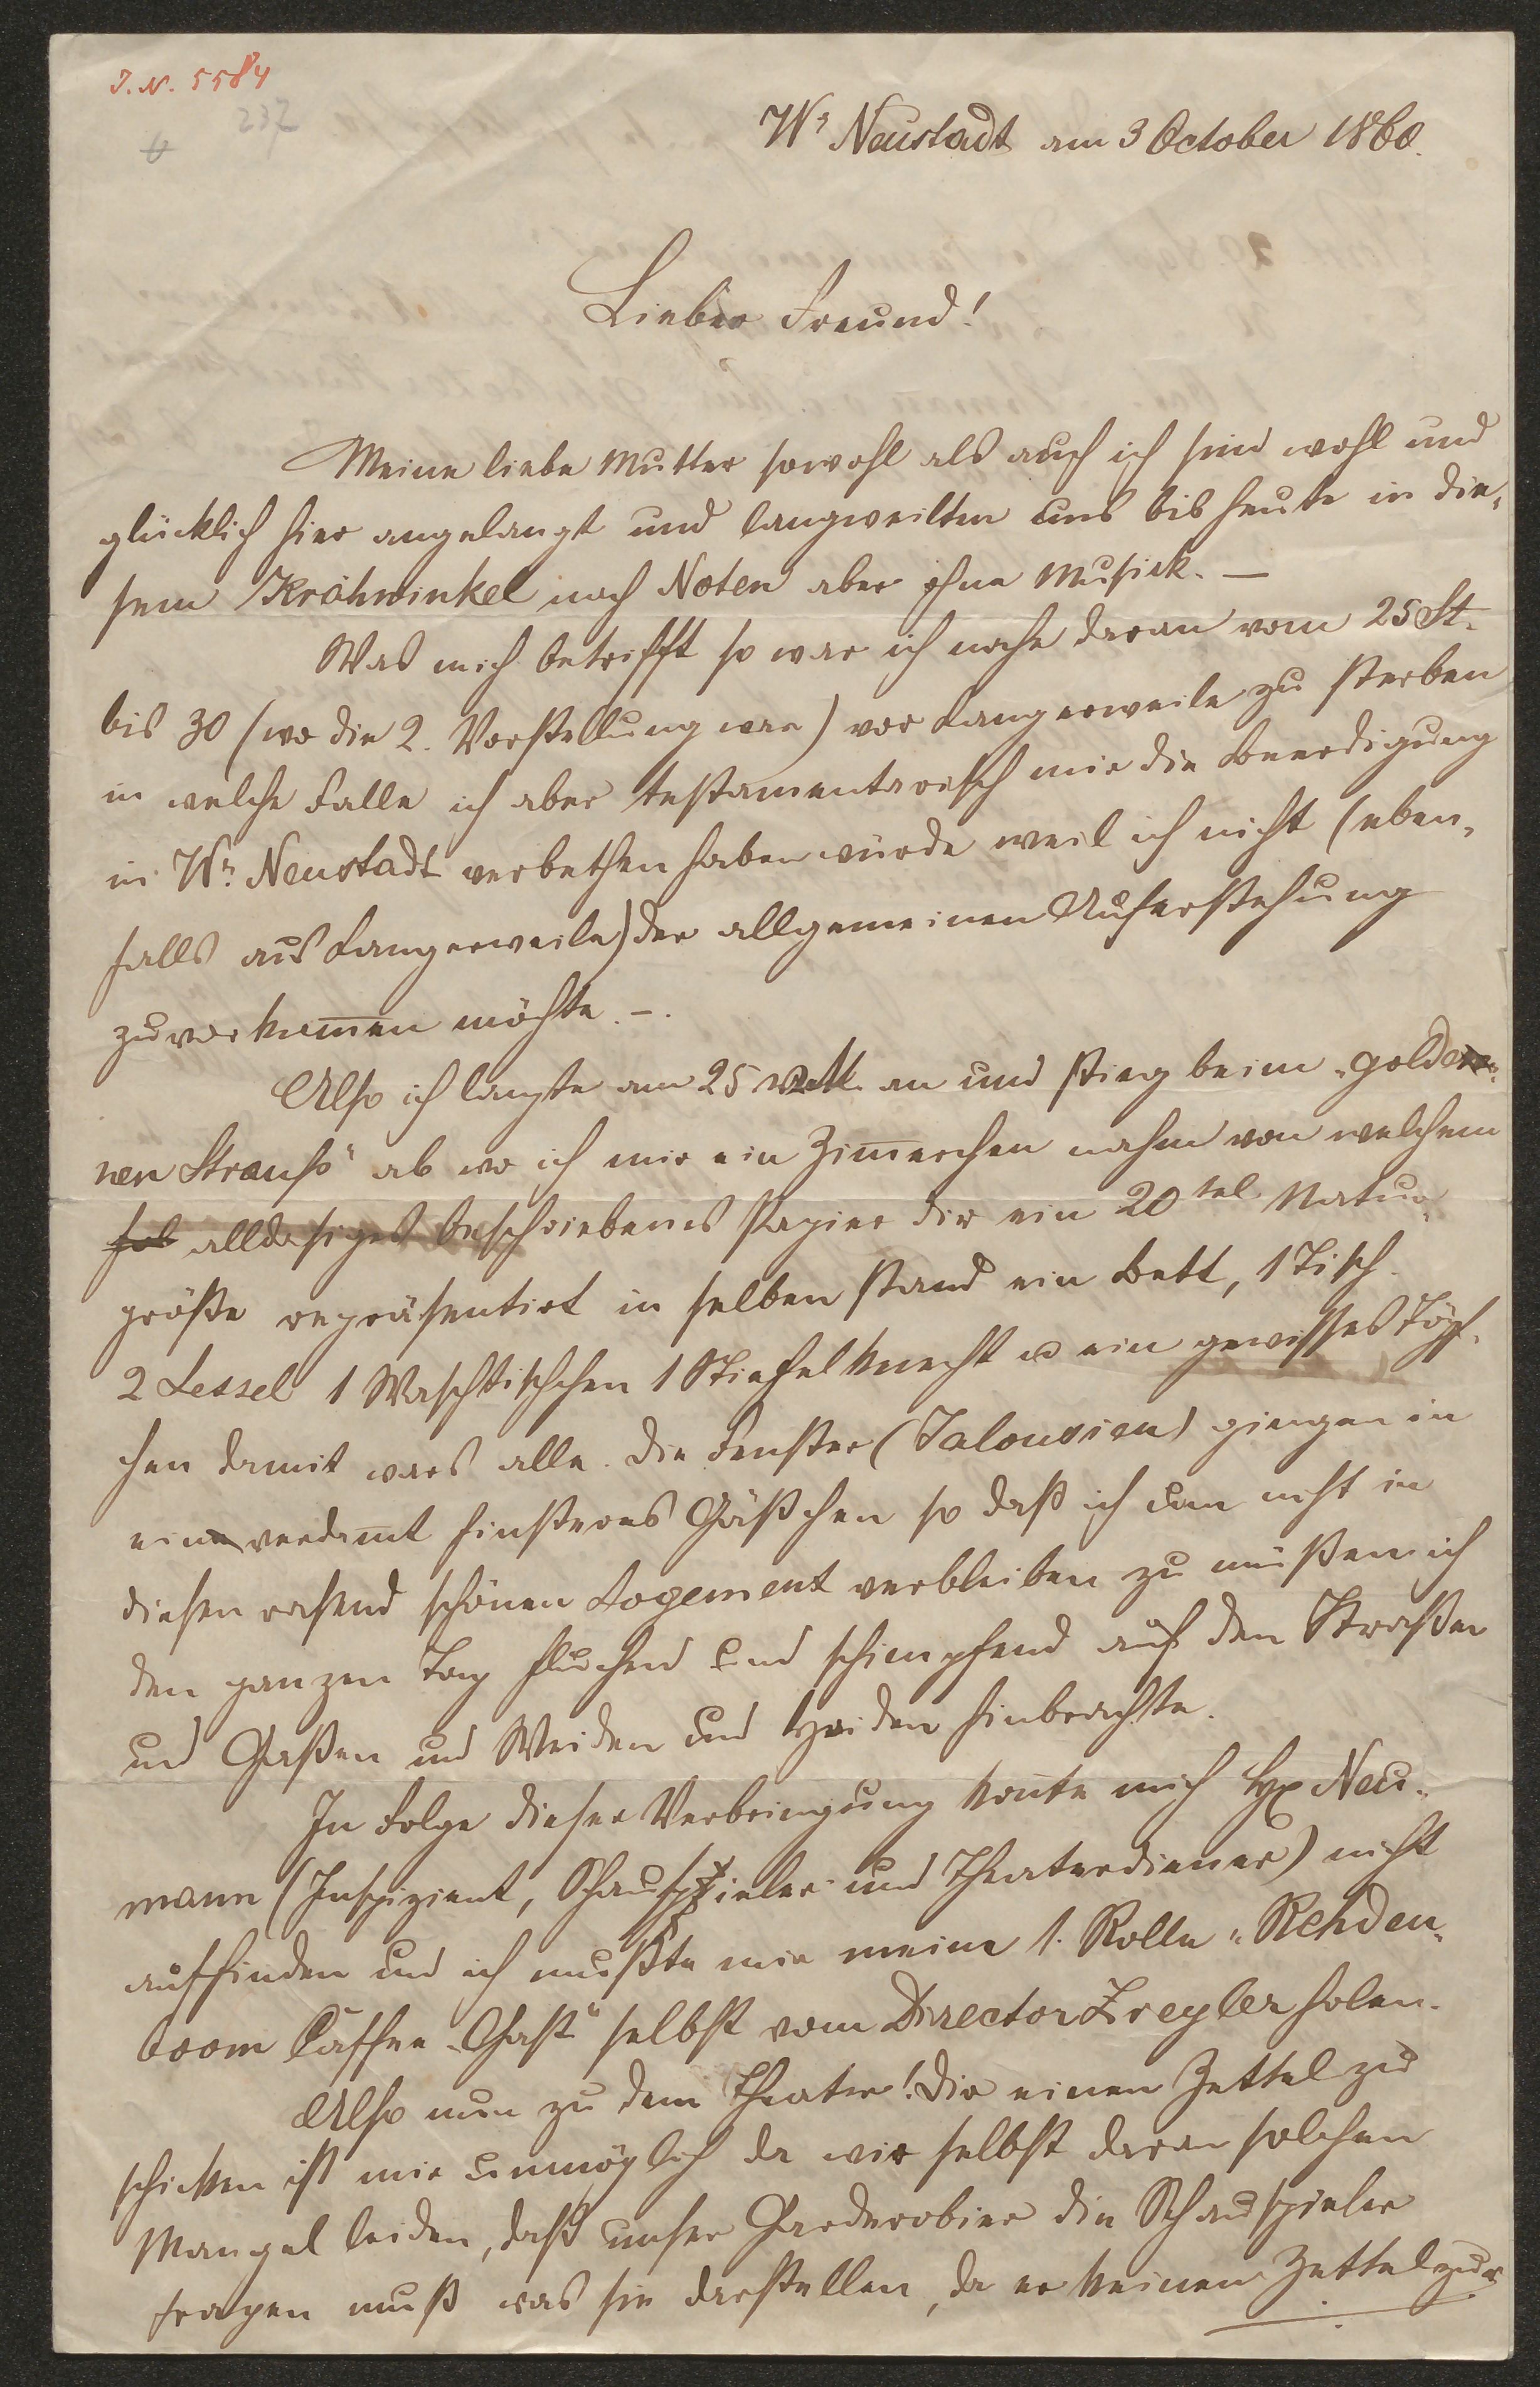 J. N. 5584
237
Wr Neustadt am 3 October 1860.
Lieber Freund!
Meine liebe Mutter sowohl als auch ich sind wohl und
glücklich hier angelangt und langweilten uns bis heute in die„
sem Krähwinkel nach Noten aber ohne Musick. —
Was mich betrifft so war ich nahe daran vom 25 St.
bis 30 (wo die 2. Vorstellung war) vor Langerweile zu sterben
in welche Falle ich aber testamentarisch mir die Beerdigung
in Wr. Neustadt verbethen haben würde weil ich nicht (eben„
falls aus Langerweile) der allgemeinen Auferstehung
zuvorkom̅en möchte. —.
Also ich langte am 25 an und stieg beim „golde„
nen Strauß" ab wo ich mir ein Zim̅erchen nahm von welchem
alldasiges beschriebenes Papier dir ein 20tel Natur„
größe repräsentirt in selben stand ein Bett, 1 Tisch
2 Sessel 1 Waschtischchen 1 Stiefelknecht u ein gewisses Töpf„
chen damit wars alle. Die Fenster (Jalousien) giengen in
ein verdam̅t finsteres Gäßchen so daß ich um nicht in
diesen rasend schönen Logement verbleiben zu müßen ich
den ganzen Tag fluchend und schimpfend auf den Straßen
und Gaßen und Weiden und Haiden hinbrachte.
In Folge dieser Verbringung kon̅te mich Hr Neu„
mann (Inspizient, Schauspieler und Theaterdiener) nicht
auffinden und ich mußte mir meine 1. Rolle „Rehden„
boom Caffee-Gast" selbst vom Director Zregler holen.
Also nun zu dem Theater! Dir einen Zettel zu
schicken ist mir unmöglich da wir selbst daran solchen
Mangel leiden, daß unser Garderobier die Schauspieler
fragen muß was sie darstellen, da er keinen Zettel zur